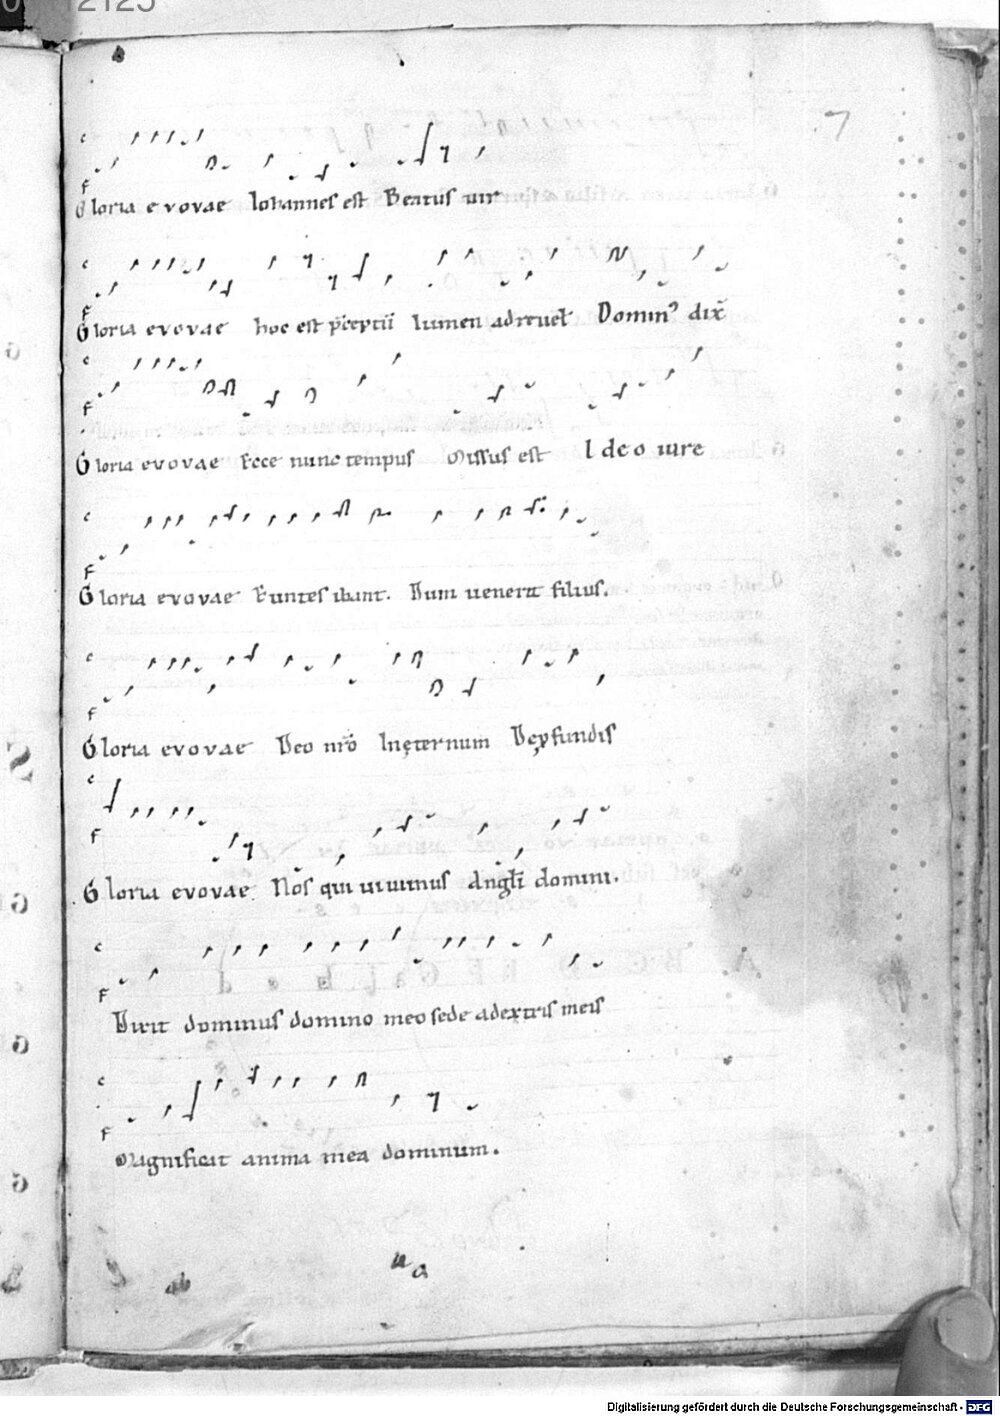 7
c
F
Gloria evovae Iohannes est Beatus uir
c
F
Gloria evovae hoc est p̄ceptū lumen adreuel̄ Dominꝰ dix̄
c
F
Gloria evovae Ecce nunc tempus Missus est Ideo iure
c
F
Gloria evovae Euntes ibant. Dum uenerit filius.
c
F
Gloria evovae Deo nr̄o Inęternum De ꝓfundis
c
F
Gloria evovae Nos qui uiuimus Angl̄i domini.
c
F
Dixit dominus domino meo sede adextris meis
c
F
Magnificat anima mea dominum.
Digitalisierung gefördert durch die Deutsche Forschungsgemeinschaft - DFG